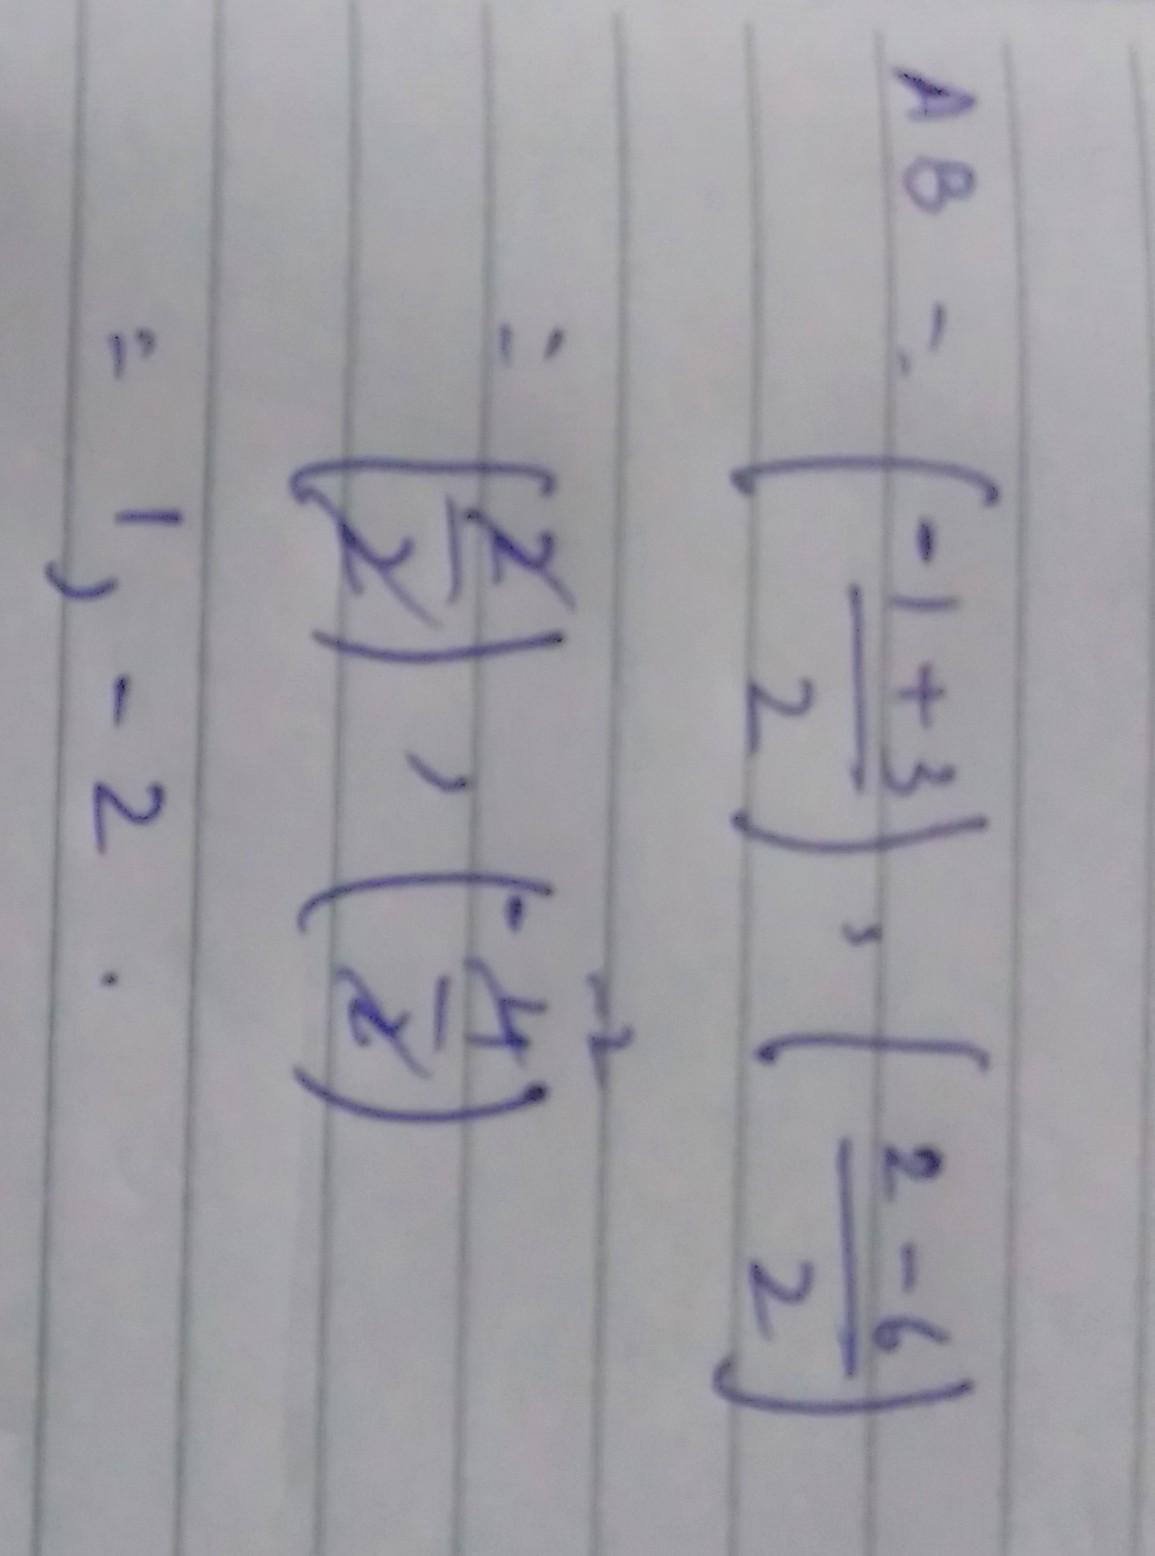 AB = [-1+3/2], [2-6/2]
= [2/2], [-4/2] -2
= 1, -2.